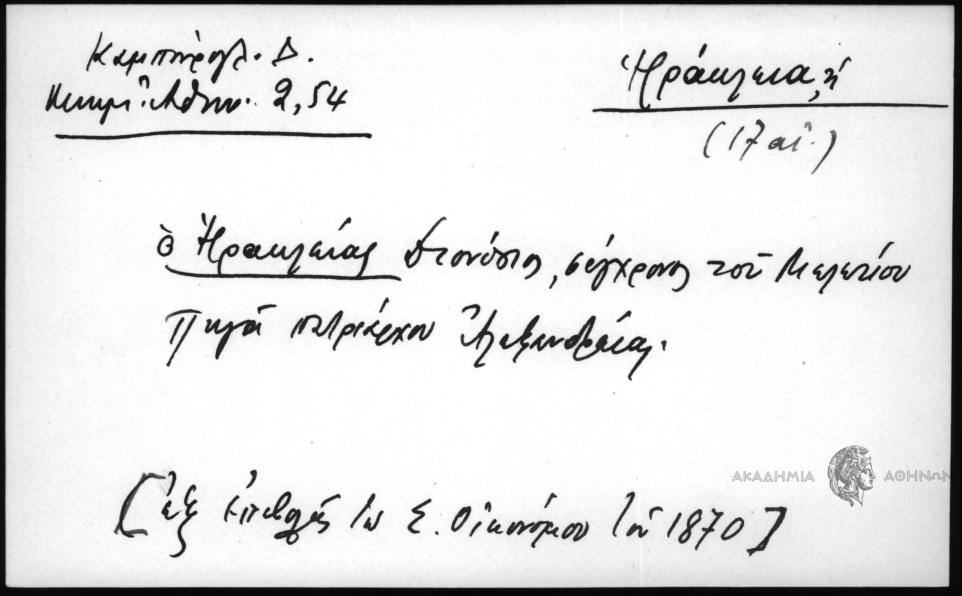 Καμπούρογλ. Δ.
Μνημ. Ἀθην. 2,54
Ἡράκλεια, ἡ
(17 αἰ.)
ὁ Ἡρακλείας Διονύσιος, σύγχρονος τοῦ Μελετίου
Πηγᾶ πατριάρχου Ἀλεξανδρείας.
[ἐξ ἐπιστολῆς Σ. Οἰκονόμου τοῦ 1870]
ΑΚΑΔΗΜΙΑ ΑΘΗΝΩΝ